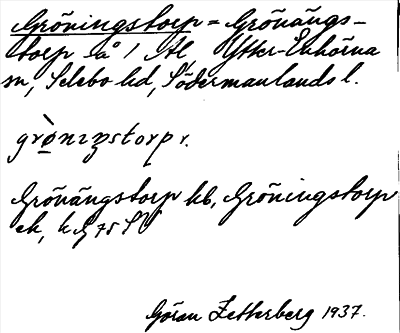 Gröningstorp = Grönängs-
torp lå 1/ Al Ytter-Enhörna
sn, Selebo hd, Södermanlands l.
grò̱nɪŋstorp r.
Grönängstorp kb, Gröningstorp
ek, k G 75 SV
Göran Zetterberg 1937.